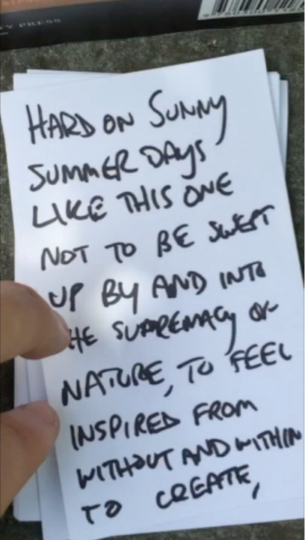 Y PRESS
HARD ON SUNNY
SUMMER DAYS
LIKE THIS ONE
NOT TO BE SWEPT
UP BY AND INTO
THE SUPREMACY OF
NATURE, TO FEEL
INSPIRED FROM
WITHOUT AND WITHIN
TO CREATE,